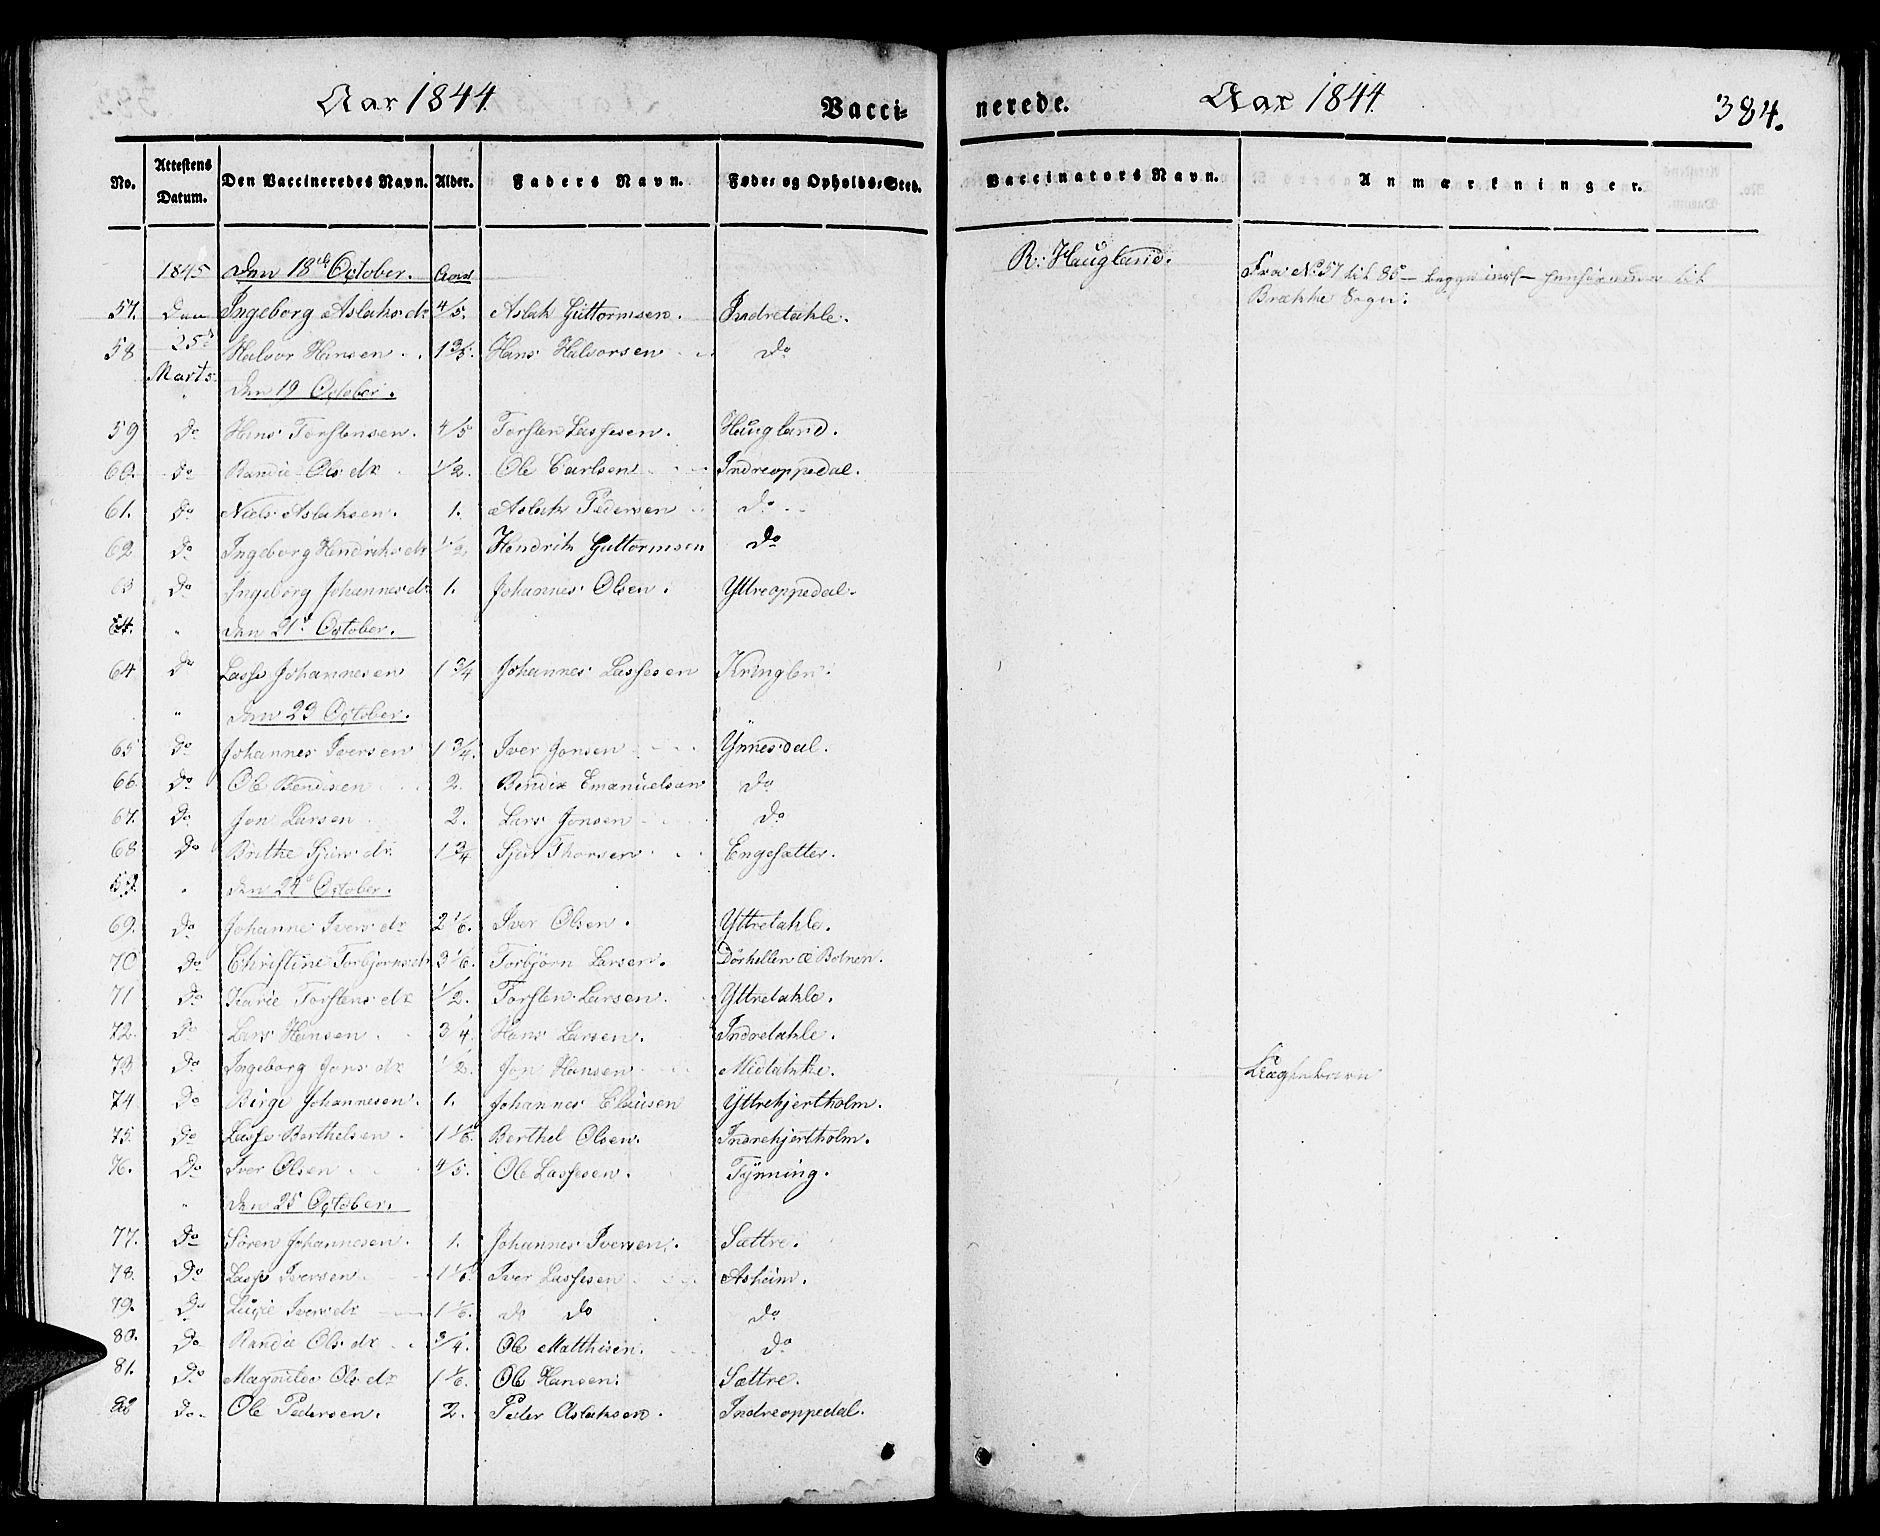 Aar 1844 Vacci-
nerede. Aar 1844. 384.
No. Attestens Datum. Den Vaccineredes Navn. Alder. Faders Navn. Føde- og Opholds-Sted. Vaccinators Navn. Anmærkninger.
1845 Den 18de October. Aar R: Haugland. Fra No 57 til 86 – begge incl –
til
Brække Sogn:
57. Den Ingeborg Aslaks dr 4/5. Aslak Guttormsen. Indretakle.
58 25de Halvor Hansen 1 3/5. Hans Halvorsen do
Marts Den 19 October.
59 Do Hans Torstensen. 4/5 Torsten Lassesen. Haugland.
60. Do Randie Ols dr 1/2. Ole Carlsen Indreoppedal.
61. Do Niels Aslaksen. 1. Aslak Pedersen do
62 Do Ingeborg Hendriks dr 1/2 Hendrik Guttormsen do
63 Do Ingeborg Johannes dr 1. Johannes Olsen. Yttreoppedal.
64. " Den 21de October.
64 Do Lasse Johannesen 1 3/4 Johannes Lassesen Kringlen.
" Den 23 October.
65 Do Johannes Iversen 1 3/4. Iver Jonsen Ynnesdal.
66. Do Ole Bendixen 2. Bendix Emanuelsen do
67. Do Jon Larsen 2. Lars Jonsen do
68 Do Brithe Sjurs dr. 1 3/4 Sjur Thorsen Engesætter.
59. " Den 24de October.
69. Do Johanne Ivers dr 2 1/6. Iver Olsen. Yttretakle.
70 Do Christine Torbjørns dr 3 1/6. Torbjørn Larsen. Dörhellen a Botnen.
71 Do Karie Torstens dr 1/2. Torsten Larsen. Yttretakle.
72. Do Lars Hansen 3/4. Hans Larsen. Indretakle.
73 Do Ingeborg Jons dr 1/2. Jon Hansen Midtakle.
74 Do Birge Johannesen. 1. Johannes Clausen Yttrehjertholm.
75. Do Lasse Berthelsen. 1 1/6. Berthel Olsen. Indrehjertholm.
76. Do Iver Olsen 4/5. Ole Lassesen. Tynning.
" Den 25 October.
77. Do Sören Johannesen. 1. Johannes Iversen. Sættre.
78. Do Lasse Iversen. 1 1/6. Iver Lassesen Asheim.
79. Do Ivers dr 1 1/6. do do do
80. Do Randie Ols dr 3/4. Ole Matthisen. do
81. Do Magnilde Ols dr 1 1/6. Ole Hansen. Sættre.
82 Do Ole Pedersen. 2. Peder Aslaksen. Indreoppedal.